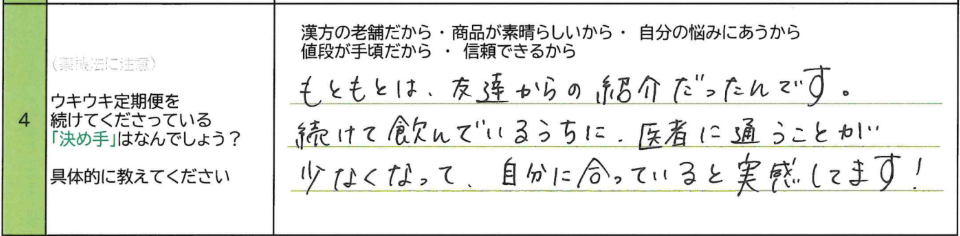 漢方の老舗だから・商品が素晴らしいから・ 自分の悩みにあうから
値段が手頃だから ・ 信頼できるから
(薬機法に注意)
4
ウキウキ定期便を
続けてくださっている
「決め手」はなんでしょう？
具体的に教えてください
もともとは、友達からの紹介だったんです。
続けて飲んでいるうちに、医者に通うことが
少なくなって、自分に合っていると実感してます！